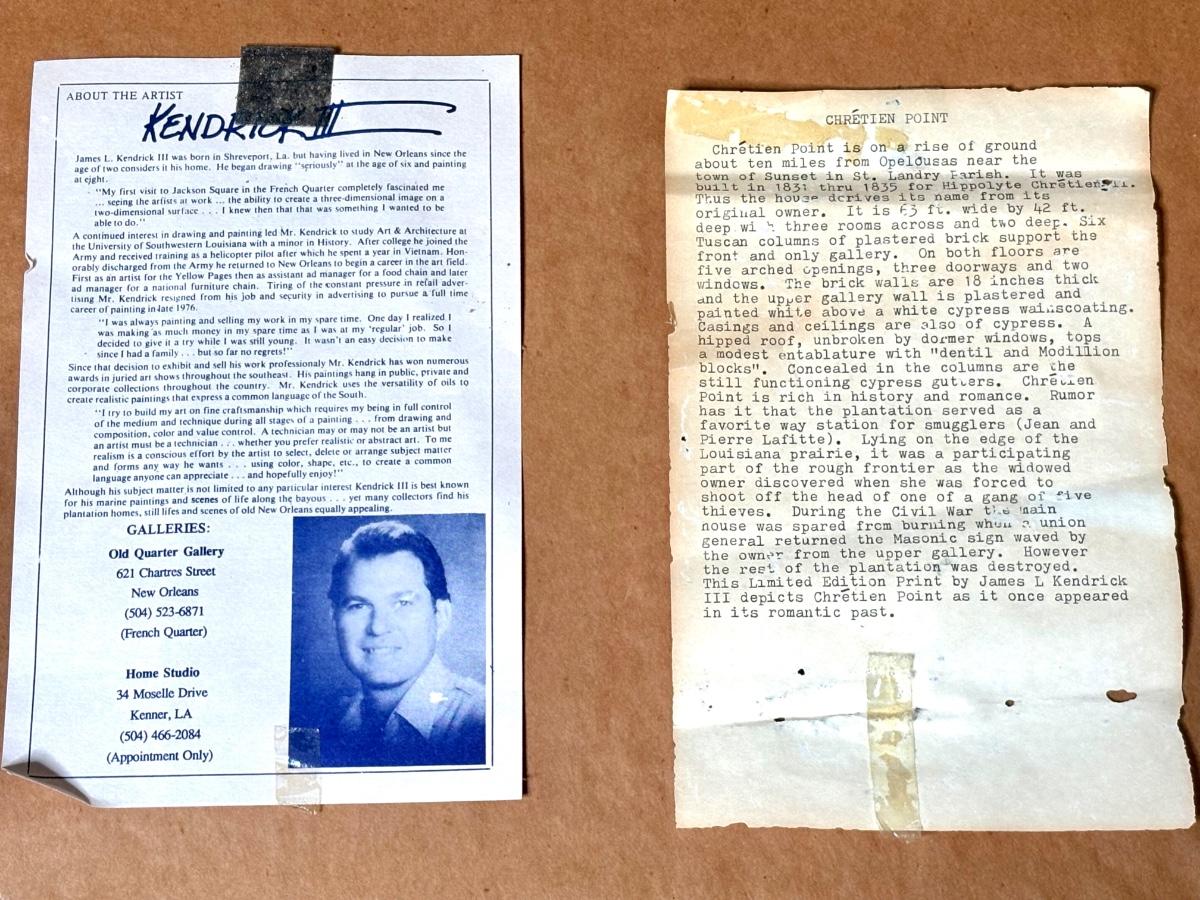 ABOUT THE ARTIST
KENDRICK III
James L. Kendrick III was born in Shreveport, La. but having lived in New Orleans since the
age of two considers it his home. He began drawing "seriously" at the age of six and painting
at eight.
"My first visit to Jackson Square in the French Quarter completely fascinated me
... seeing the artists at work ... the ability to create a three-dimensional image on a
two-dimensional surface . . . I knew then that that was something I wanted to be
able to do."
A continued interest in drawing and painting led Mr. Kendrick to study Art & Architecture at
the University of Southwestern Louisiana with a minor in History. After college he joined the
Army and received training as a helicopter pilot after which he spent a year in Vietnam. Hon-
orably discharged from the Army he returned to New Orleans to begin a career in the art field.
First as an artist for the Yellow Pages then as assistant ad manager for a food chain and later
ad manager for a national furniture chain. Tiring of the constant pressure in retail adver-
tising Mr. Kendrick resigned from his job and security in advertising to pursue a full time
career of painting in late 1976.
"I was always painting and selling my work in my spare time. One day I realized I
was making as much money in my spare time as I was at my 'regular' job. So I
decided to give it a try while I was still young. It wasn't an easy decision to make
since I had a family . . . but so far no regrets!"
Since that decision to exhibit and sell his work professionaly Mr. Kendrick has won numerous
awards in juried art shows throughout the southeast. His paintings hang in public, private and
corporate collections throughout the country. Mr. Kendrick uses the versatility of oils to
create realistic paintings that express a common language of the South.
"I try to build my art on fine craftsmanship which requires my being in full control
of the medium and technique during all stages of a painting . . . from drawing and
composition, color and value control. A technician may or may not be an artist but
an artist must be a technician . . . whether you prefer realistic or abstract art. To me
realism is a conscious effort by the artist to select, delete or arrange subject matter
and forms any way he wants . . . using color, shape, etc., to create a common
language anyone can appreciate . . . and hopefully enjoy!"
Although his subject matter is not limited to any particular interest Kendrick III is best known
for his marine paintings and scenes of life along the bayous . . . yet many collectors find his
plantation homes, still lifes and scenes of old New Orleans equally appealing.
GALLERIES:
Old Quarter Gallery
621 Chartres Street
New Orleans
(504) 523-6871
(French Quarter)
Home Studio
34 Moselle Drive
Kenner, LA
(504) 466-2084
(Appointment Only)
CHRÉTIEN POINT
Chrétien Point is on a rise of ground
about ten miles from Opelousas near the
town of Sunset in St. Landry Parish. It was
built in 1831 thru 1835 for Hippolyte Chrétien II.
Thus the house derives its name from its
original owner. It is 63 ft. wide by 42 ft.
deep with three rooms across and two deep. Six
Tuscan columns of plastered brick support the
front and only gallery. On both floors are
five arched openings, three doorways and two
windows. The brick walls are 18 inches thick
and the upper gallery wall is plastered and
painted white above a white cypress wainscoating.
Casings and ceilings are also of cypress. A
hipped roof, unbroken by dormer windows, tops
a modest entablature with "dentil and Modillion
blocks". Concealed in the columns are the
still functioning cypress gutters. Chrétien
Point is rich in history and romance. Rumor
has it that the plantation served as a
favorite way station for smugglers (Jean and
Pierre Lafitte). Lying on the edge of the
Louisiana prairie, it was a participating
part of the rough frontier as the widowed
owner discovered when she was forced to
shoot off the head of one of a gang of five
thieves. During the Civil War the main
house was spared from burning when a union
general returned the Masonic sign waved by
the owner from the upper gallery. However
the rest of the plantation was destroyed.
This Limited Edition Print by James L Kendrick
III depicts Chrétien Point as it once appeared
in its romantic past.